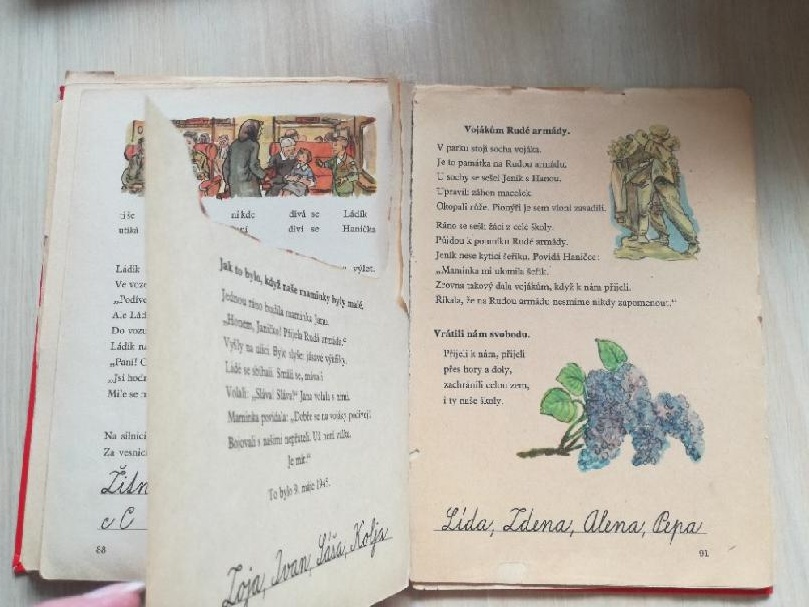 tiše nikde dívá se Ládík
utíká diví se Hanička
Ládík výlet.
Ve
Ale
Do
Ládík
„Paní!
„Jsi
Na silnici
Za vesnicí
c C
88
Jak to bylo, když naše maminky byly malé.
Jednou ráno budila maminka Janu.
„Honem, Janičko! Přijela Rudá armáda.“
Vyšly na ulici. Bylo slyšet jásavé výkřiky.
Lidé se sbíhali. Smáli se, mávali
Volali: „Sláva! Sláva!“ Jana volala s nimi.
Maminka povídala: „Dobře se na vojáky podívej!
Bojovali s našimi nepřáteli. Už není válka.
Je mír.“
To bylo 9. máje 1945.
Zoja, Ivan, Sáša, Kolja
Vojákům Rudé armády.
V parku stojí socha vojáka.
Je to památka na Rudou armádu.
U sochy se sešel Jeník s Hanou.
Upravili záhon macešek.
Okopali růže. Pionýři je sem vloni zasadili.
Ráno se sešli žáci z celé školy.
Půjdou k pomníku Rudé armády.
Jeník nese kytici šeříku. Povídá Haničce:
„Maminka mi ulomila šeřík.
Zrovna takový dala vojákům, když k nám přijeli.
Říkala, že na Rudou armádu nesmíme nikdy zapomenout.“
Vrátili nám svobodu.
Přijeli k nám, přijeli
přes hory a doly,
zachránili celou zem,
i ty naše školy.
Lída, Zdena, Alena, Pepa
91